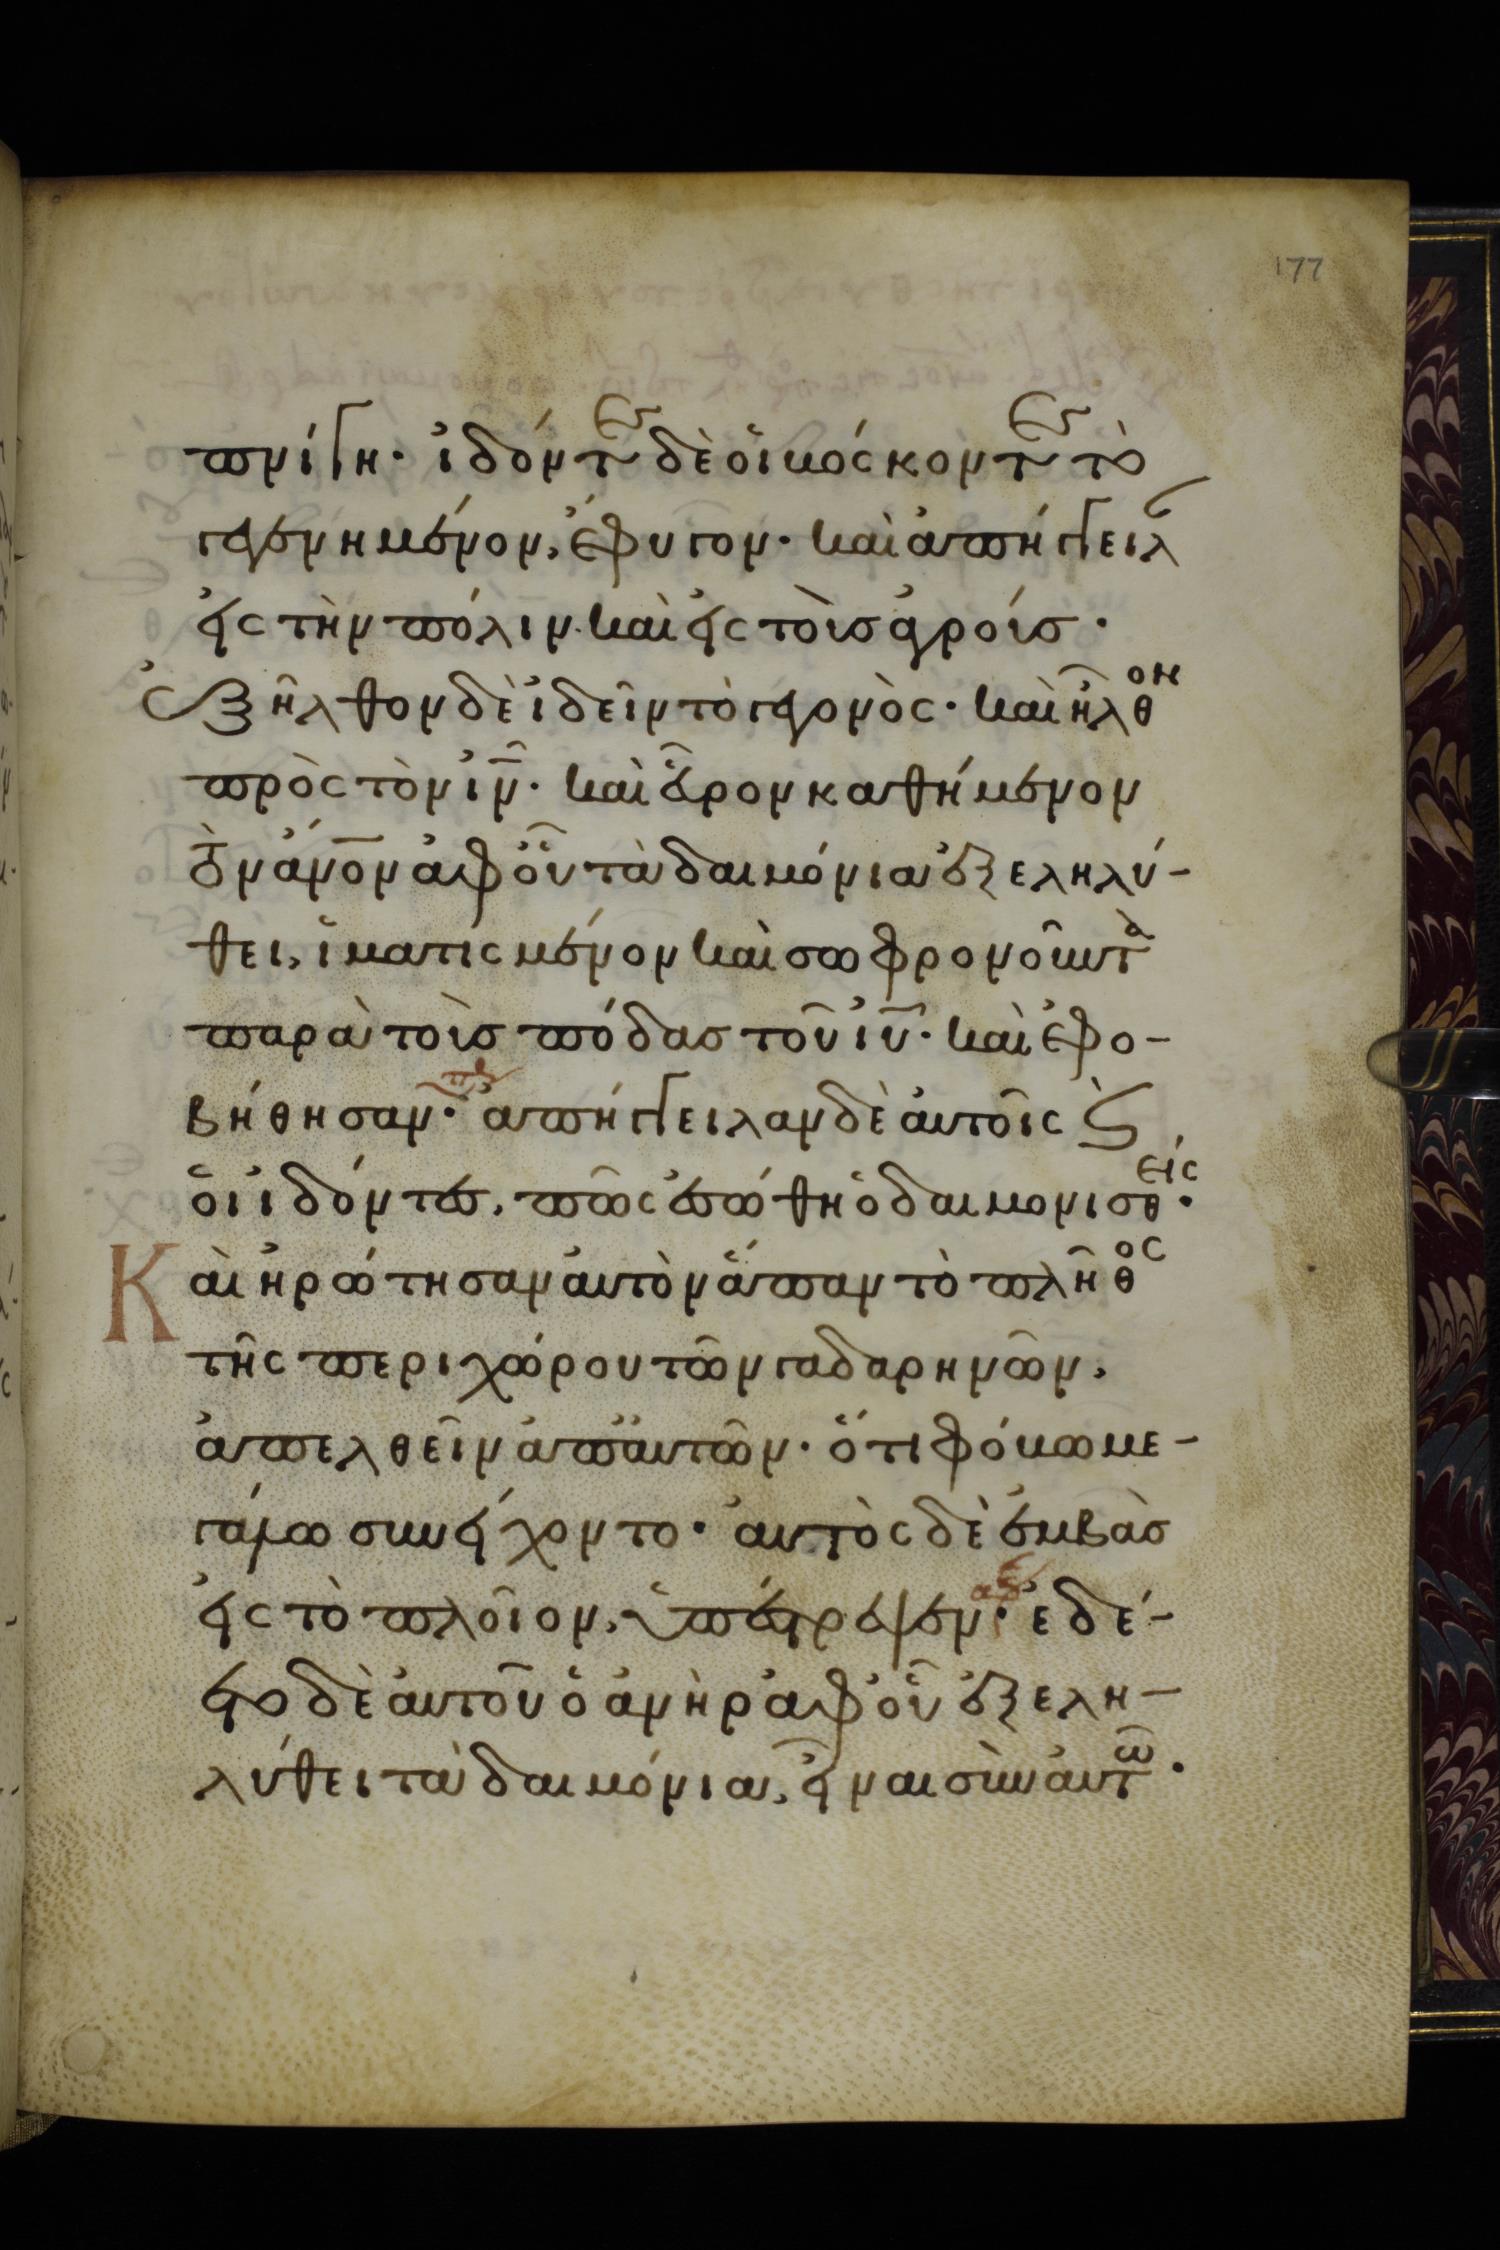 177
πνίγη· ἰδόντες δὲ οἱ βόσκοντες τὸ
γεγενημένον, ἔφυγον· καὶ ἀπήγγειλ
εἰς τὴν πόλιν καὶ εἰς τοὺς ἀγρούς·
ἐξῆλθον δὲ ἰδεῖν τὸ γεγονὸς· καὶ ἦλθον
πρὸς τὸν ἰν· καὶ εὗρον καθήμενον
τὸν ἄνον ἀφ οὗ τὰ δαιμόνια ἐξεληλύ-
θει, ἱματισμένον καὶ σωφρονοῦντα
παρὰ τοὺς πόδας τοῦ ἰυ· καὶ ἐφο-
βήθησαν· ἀπήγγειλαν δὲ αὐτοῖς ϗ
οἱ ἰδόντες, πῶς ἐσώθη ὁ δαιμονισθείς·
Καὶ ἠρώτησαν αὐτὸν ἅπαν τὸ πλῆθος
τῆς περιχώρου τῶν γαδαρηνῶν,
ἀπελθεῖν ἀπ αὐτῶν· ὅτι φόβω με-
γάλω συνείχοντο· αὐτὸς δὲ ἐμβὰς
εἰς τὸ πλοῖον, ὑπέστρεψεν· ἐδέ-
ετο δὲ αὐτοῦ ὁ ἀνὴρ ἀφ οὗ ἐξελη-
λύθει τὰ δαιμόνια, εἶναι σὺν αὐτῶ·